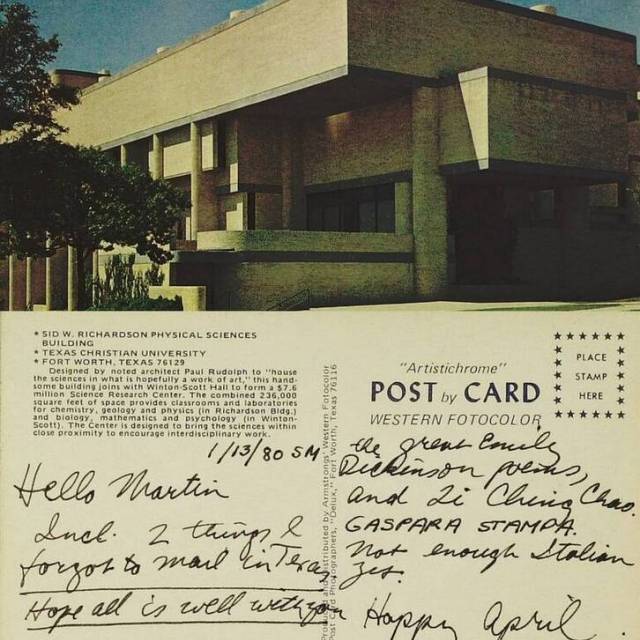 * SID W. RICHARDSON PHYSICAL SCIENCES
BUILDING
* TEXAS CHRISTIAN UNIVERSITY
* FORT WORTH, TEXAS 76129
Designed by noted architect Paul Rudolph to "house
the sciences in what is hopefully a work of art," this hand-
some building joins with Winton-Scott Hall to form a $7.6
million Science Research Center. The combined 236,000
square feet of space provides classrooms and laboratories
for chemistry, geology and physics (in Richardson Bldg.)
and biology, mathematics and psychology (in Winton-
Scott). The Center is designed to bring the sciences within
close proximity to encourage interdisciplinary work.
1/13/80 SM
Hello Martin
Incl. 2 things I
forgot to mail in Texas
Hope all is well with you
Distributed by Armstrongs' Western Fotocolor
Post Card Photographers, "Delux," Fort Worth, Texas 76116
"Artistichrome"
POST by CARD
WESTERN FOTOCOLOR
PLACE
STAMP
HERE
the great Emily
Dickinson poems,
and Li Ching Chao.
GASPARA STAMPA.
Not enough Italian
yet.
Happy April